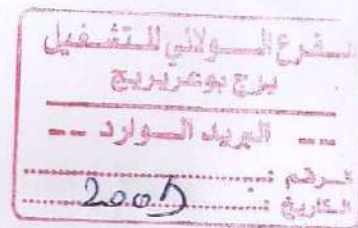 الفرع الولائي للتشغيل
برج بوعريريج
البريد الوارد
الرقم :
التاريخ : 2005